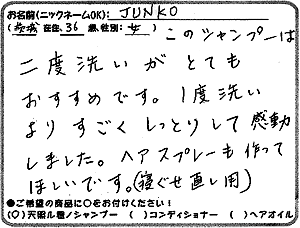 お名前(ニックネームOK): JUNKO
(茨城 在住、36 歳、性別: 女 ) このシャンプーは
二度洗いがとても
おすすめです。1度洗い
よりすごくしっとりして感動
しました。ヘアスプレーも作って
ほしいです。(寝ぐせ直し用)
●ご希望の商品に○をお付けください!
(○)天照ル髪ノシャンプー ( )コンディショナー ( )ヘアオイル